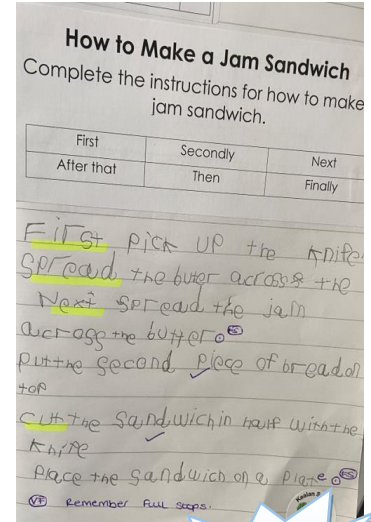 How to Make a Jam Sandwich
Complete the instructions for how to make
jam sandwich.
First Secondly Next
After that Then Finally
First pick up the knife
Spread the buter across the
Next spread the jam
across the butter. FS
put the second piece of bread on
top
cut the sandwich in half with the
knife
Place the sandwich on a plate. FS
VF Remember full stops.